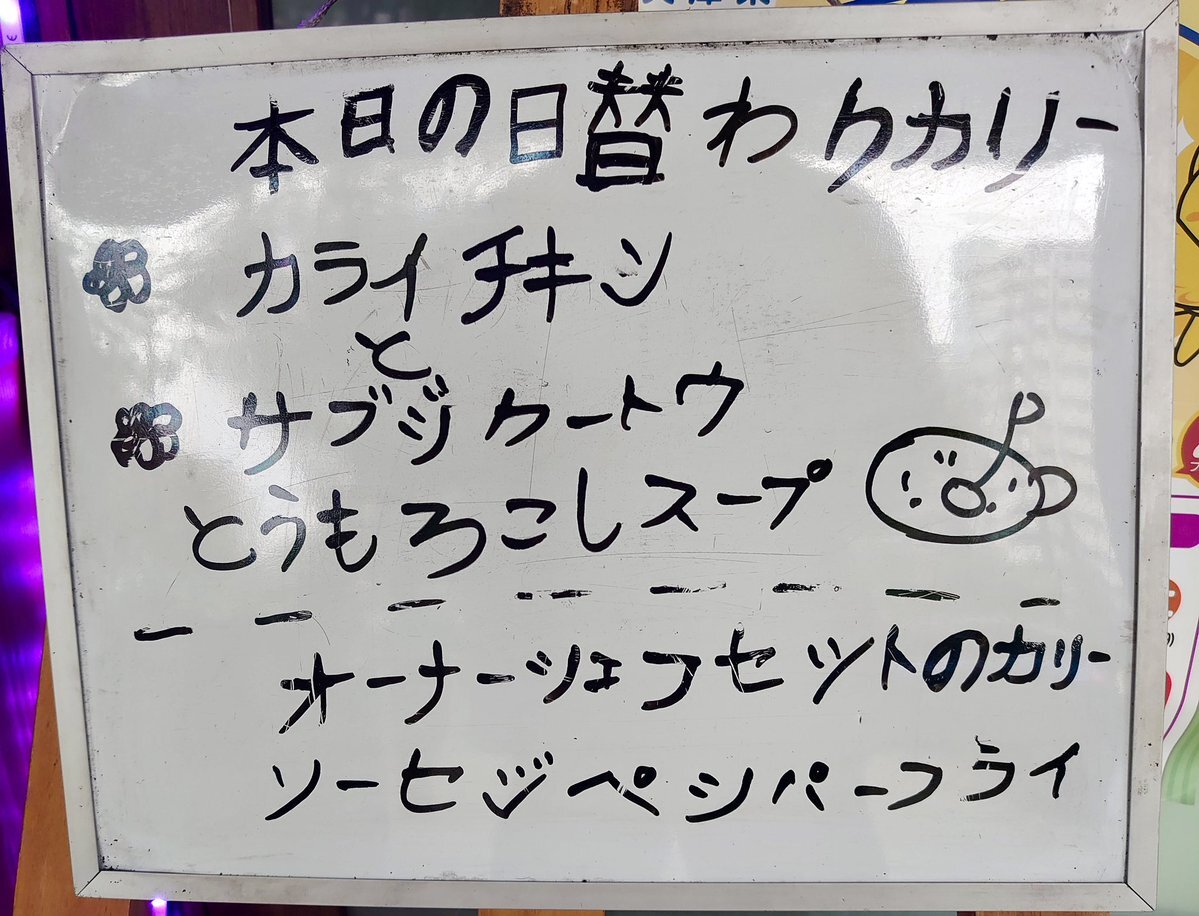 本日の日替わりカリー
カライチキン
と
サブジカートウ
とうもろこしスープ
オーナーシェフセットのカリー
ソーセジペパーフライ